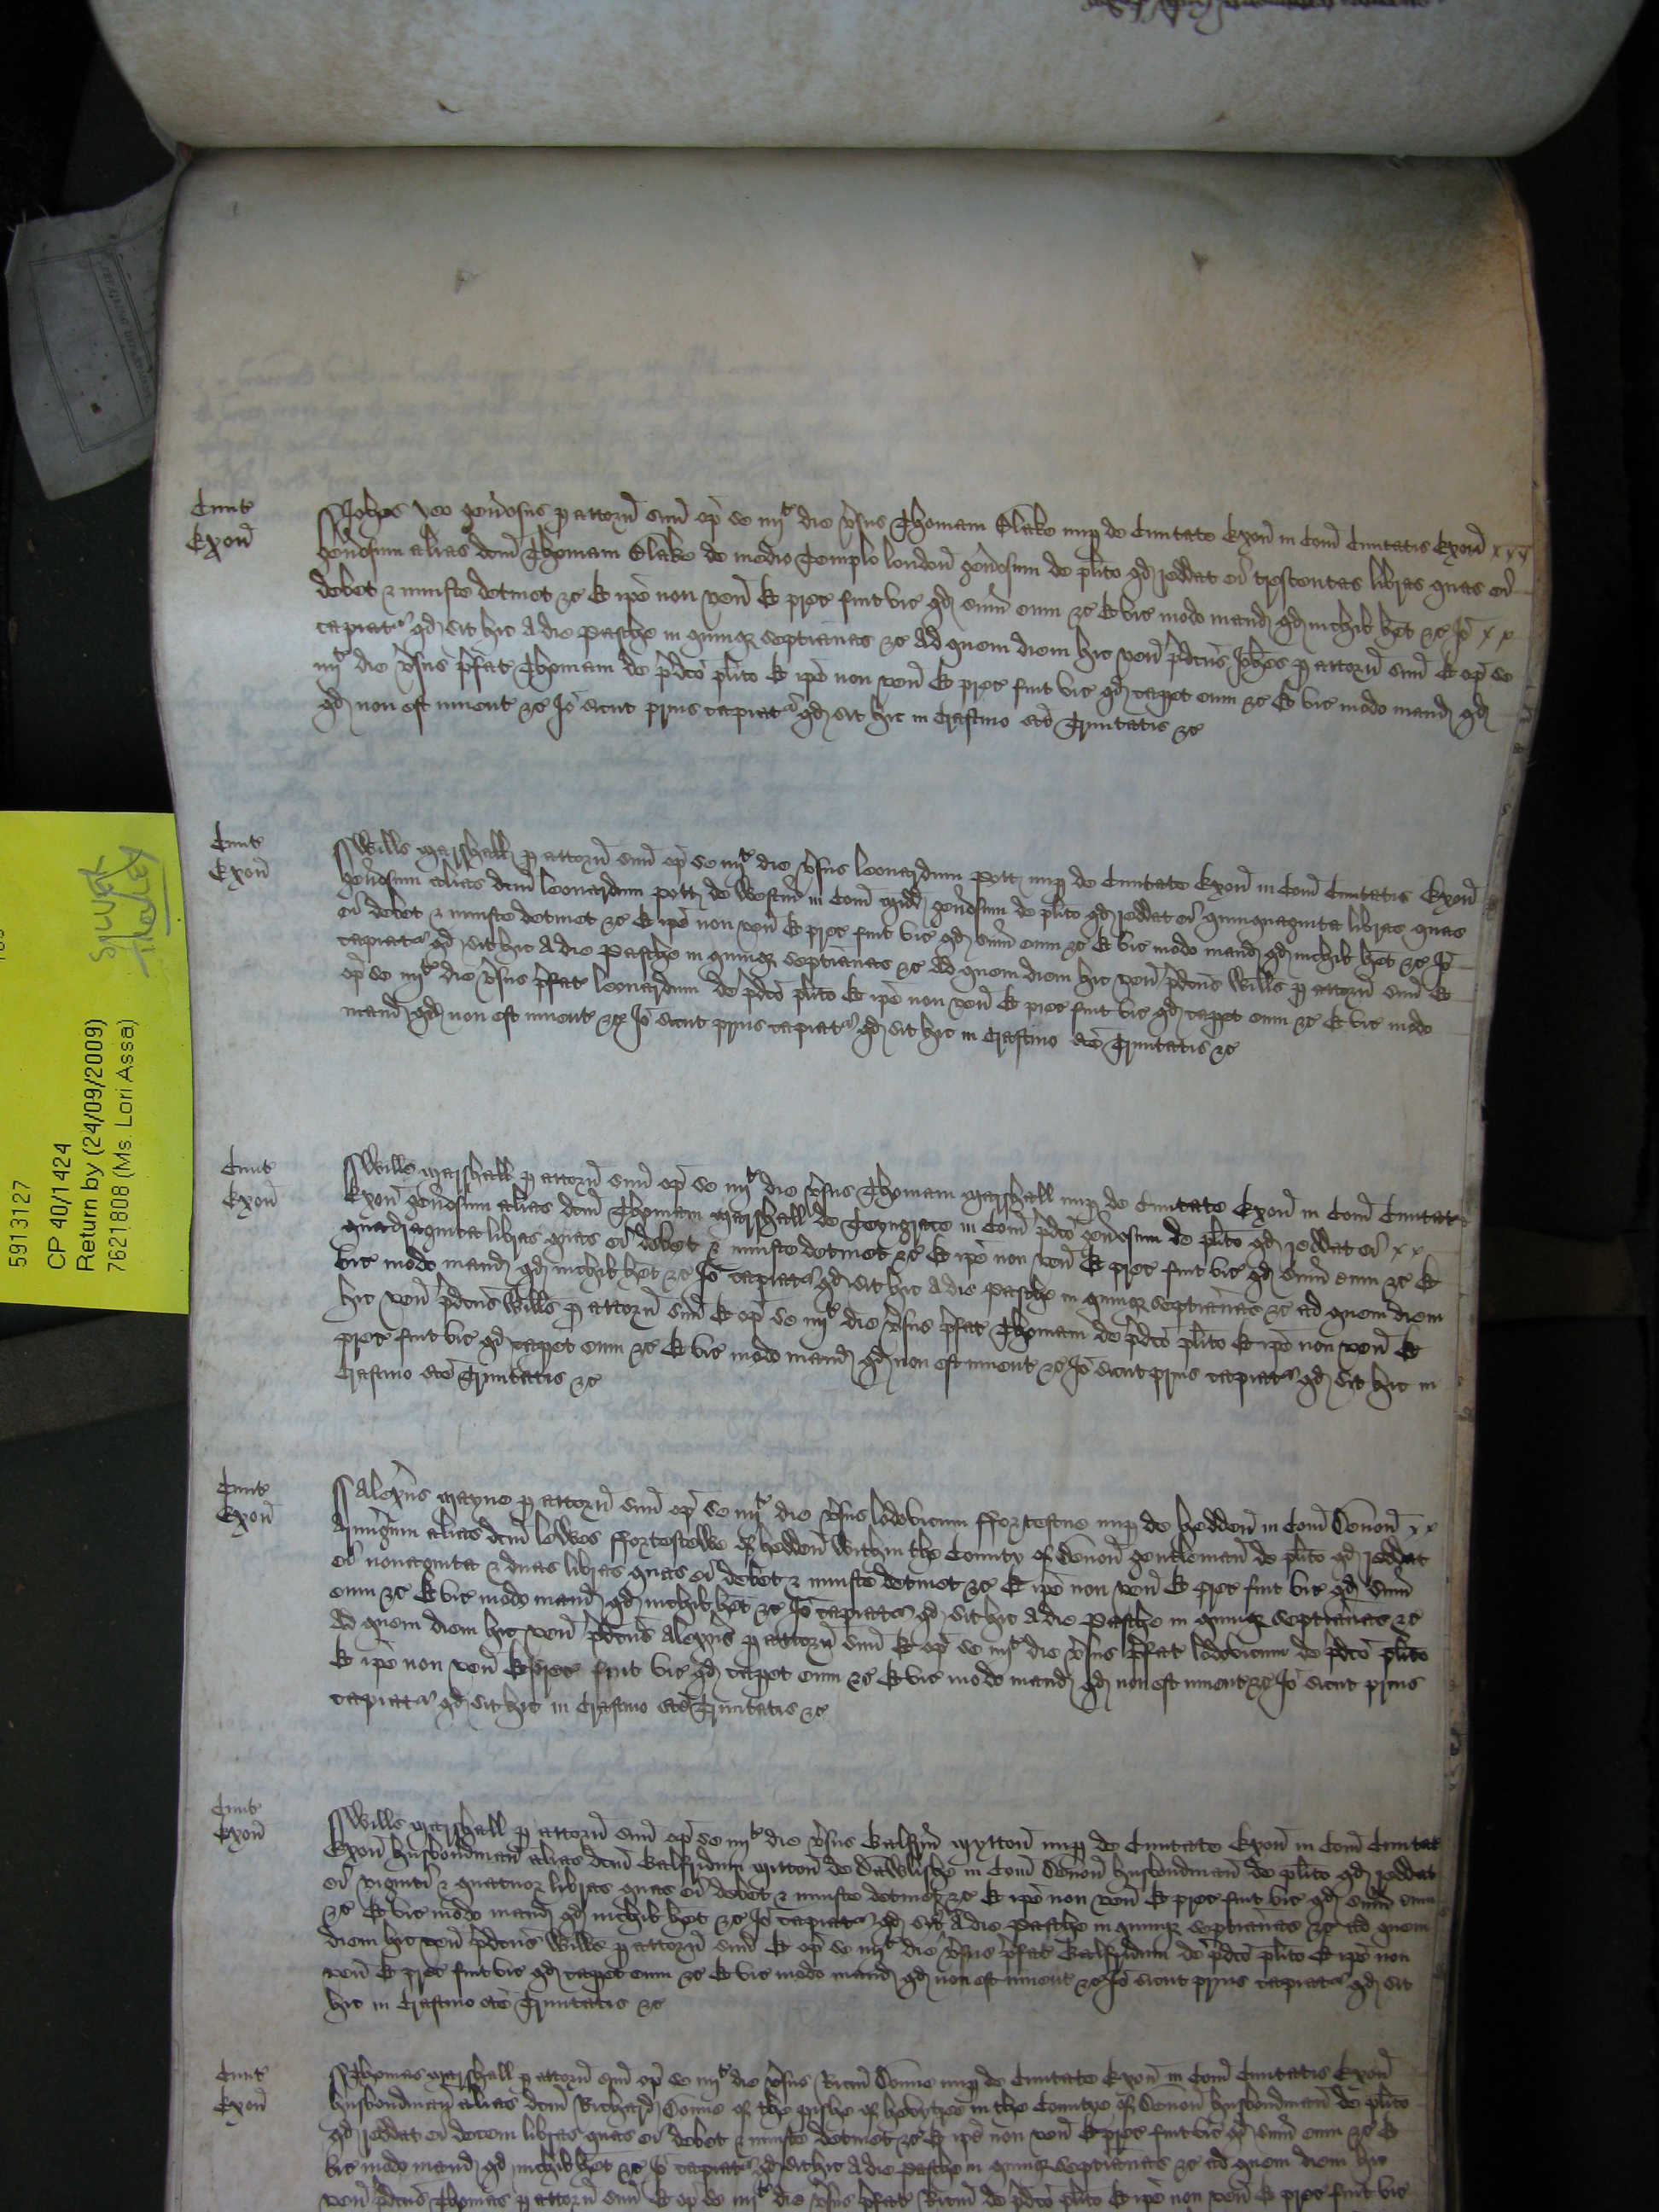 Civit
Exon̄
Joh̄es Veo gen̄osus p attorn̄ suū op̄ se iiijto die v̄sus Thomam Blake nup de Civitate Exon̄ in Com̄ Civitatis Exon̄
gen̄osum alias dc̄m Thomam Blake de medio Templo london̄ gen̄osum de pl̄ito qd reddat ei trescentas libras quas ei
debet & iniuste detinet &c Et ip̄e non ven̄ Et prec fuit vic qd sum̄ eum &c Et vic modo mand qd nichil h̄et &c Jo
capiatr qd sit hic A die Pasche in quinq septianas &c Ad quem diem hic ven̄ p̄dcūs Joh̄es p attorn̄ suū Et op̄ se
iiijto die v̄sus p̄fat Thomam de p̄dc̄o pl̄ito Et ip̄e non ven̄ Et prec fuit vic qd capet eum &c Et vic modo mand qd
qd non est invent &c Jo sicut prius capiatr qd sit hic in Crastino sc̄e Trinitatis &c
Civit
Exon̄
Will̄s Marshall p attorn̄ suū op̄ se iiijto die v̄sus leonardum pott nup de Civitate Exon̄ in Com̄ Civitatis Exon̄
gen̄osum alias dc̄m leonardum pott de Westm̄ in Com̄ Midd gen̄osum de pl̄ito qd reddat ei quinquaginta libras quas
ei debet & iniuste detinet &c Et ip̄e non ven̄ Et prec fuit vic qd sum̄ eum &c Et vic modo mand qd nichil h̄et &c Jo
capiatr qd sit hic A die Pasche in quinq septianas &c Ad quem diem hic ven̄ p̄dcūs Will̄s p attorn̄ suū Et
op̄ se iiijto die v̄sus p̄fat leonardum de p̄dc̄o pl̄ito Et ip̄e non ven̄ Et prec fuit vic qd capet eum &c Et vic modo
mand qd non est invent &c Jo sicut prius capiatr qd sit hic in Crastino sc̄e Trinitatis &c
Civit
Exon̄
Will̄s Marshall p attorn̄ suū op̄ se iiijto die v̄sus Thomam Marshall nup de Civitate Exon̄ in Com̄ Civitatis
Exon̄ gen̄osum alias dc̄m Thomam Marshall de Teyngrace in Com̄ p̄dc̄o gen̄osum de pl̄ito qd reddat ei
quadraginta libras quas ei debet & iniuste detinet &c Et ip̄e non ven̄ Et prec fuit vic qd sum̄ eum &c Et
vic modo mand qd nichil h̄et &c Jo capiatr qd sit hic A die Pasche in quinq septianas &c ad quem diem
hic ven̄ p̄dcūs Will̄s p attorn̄ suū Et op̄ se iiijto die v̄sus p̄fat Thomam de p̄dc̄o pl̄ito Et ip̄e non ven̄ Et
prec fuit vic qd capet eum &c Et vic modo mand qd non est invent &c Jo sicut prius capiatr qd sit hic in
Crastino sc̄e Trinitatis &c
Civit
Exon̄
Alex̄us Mayne p attorn̄ suū op̄ se iiijto die v̄sus lodovicum ffortescue nup de hedden̄ in Com̄ Devon̄
Armigum alias dc̄m lewes ffortescewe of hedden̄ Within the County of Devon̄ gentleman̄ de pl̄ito qd reddat
ei nonaginta & duas libras quas ei debet & iniuste detinet &c Et ip̄e non ven̄ Et prec fuit vic qd sum̄
eum &c Et vic modo mand qd nichil h̄et &c Jo capiatr qd sit hic A die Pasche in quinq septianas &c
Ad quem diem hic ven̄ p̄dcūs Alex̄us p attorn̄ suū Et op̄ se iiijto die v̄sus p̄fat lodovicum de p̄dc̄o pl̄ito
Et ip̄e non ven̄ Et prec fuit vic qd capet eum &c Et vic modo mand qd non est invent &c Jo sicut prius
capiatr qd sit hic in Crastino sc̄e Trinitatis &c
Civit
Exon̄
Will̄s Marshall p attorn̄ suū op̄ se iiijto die v̄sus Galfr̄m Mytton̄ nup de Civitate Exon̄ in Com̄ Civitat
Exon̄ husbondman̄ alias dc̄m Galfridum Mitton̄ de Dawlishe in Com̄ Devon̄ husbondman̄ de pl̄ito qd reddat
ei viginti & quatuor libras quas ei debet & iniuste detinet &c Et ip̄e non ven̄ Et prec fuit vic qd sum̄ eum
&c Et vic modo mand qd nichil h̄et &c Jo capiatr qd sit A die Pasche in quinq septianas &c ad quem
diem hic ven̄ p̄dcūs Will̄s p attorn̄ suū Et op̄ se iiijto die v̄sus p̄fat Galfridum de p̄dc̄o pl̄ito Et ip̄e non
ven̄ Et prec fuit vic qd capet eum &c Et vic modo mand qd non est invent &c Jo sicut prius capiatr qd sit
hic in Crastino sc̄e Trinitatis &c
Civit
Exon̄
Thomas Marshall p attorn̄ suū op̄ se iiijto die v̄sus Ricm̄ Donne nup de Civitate Exon̄ in Com̄ Civitatis Exon̄
husbondman̄ alias dc̄m Richard Donne of the pishe of in the Countye of Devon̄ husbondman̄ de pl̄ito
qd reddat ei decem libras quas ei debet & iniuste detinet &c Et ip̄e non ven̄ Et prec fuit vic qd sum̄ eum &c Et
vic modo mand qd nichil h̄et &c Jo capiatr qd sit hic A die Pasche in quinq septianas &c ad quem diem hic
ven̄ p̄dcūs Thomas p attorn̄ suū Et op̄ se iiijto die v̄sus p̄fat Ricm̄ de p̄dc̄o pl̄ito Et ip̄e non ven̄ Et prec fuit vic
5913127
CP 40/1424
Return by (24/09/2009)
7621808 (Ms. Lori Assa)